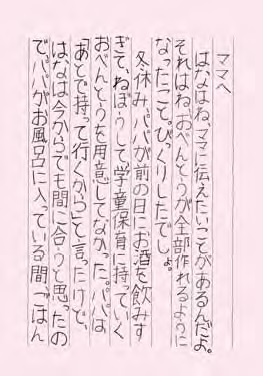 ママへ
はなはね、ママに伝えたいことがあるんだよ。
それはね、おべんとうが全部作れるように
なったこと。びっくりしたでしょ。
冬休み、パパが前の日にお酒を飲みす
ぎて、ねぼうして、学童保育に持っていく
おべんとうを用意してなかった。パパは
「あとで持って行くから」と言ったけど、
はなは今からでも間に合うと思ったの
で、パパがお風呂に入っている間、ごはん